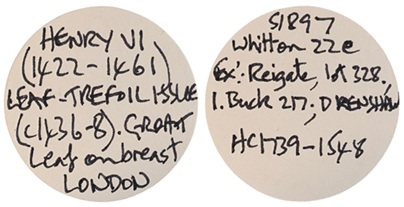 HENRY VI
(1422-1461)
LEAF-TREFOIL ISSUE
(c1436-8). GROAT
Leaf on breast
LONDON
S1897
Whitton 22e
Ex: Reigate, lot 328,
I. Buck 217. D RENSHAW
HC1739-1548